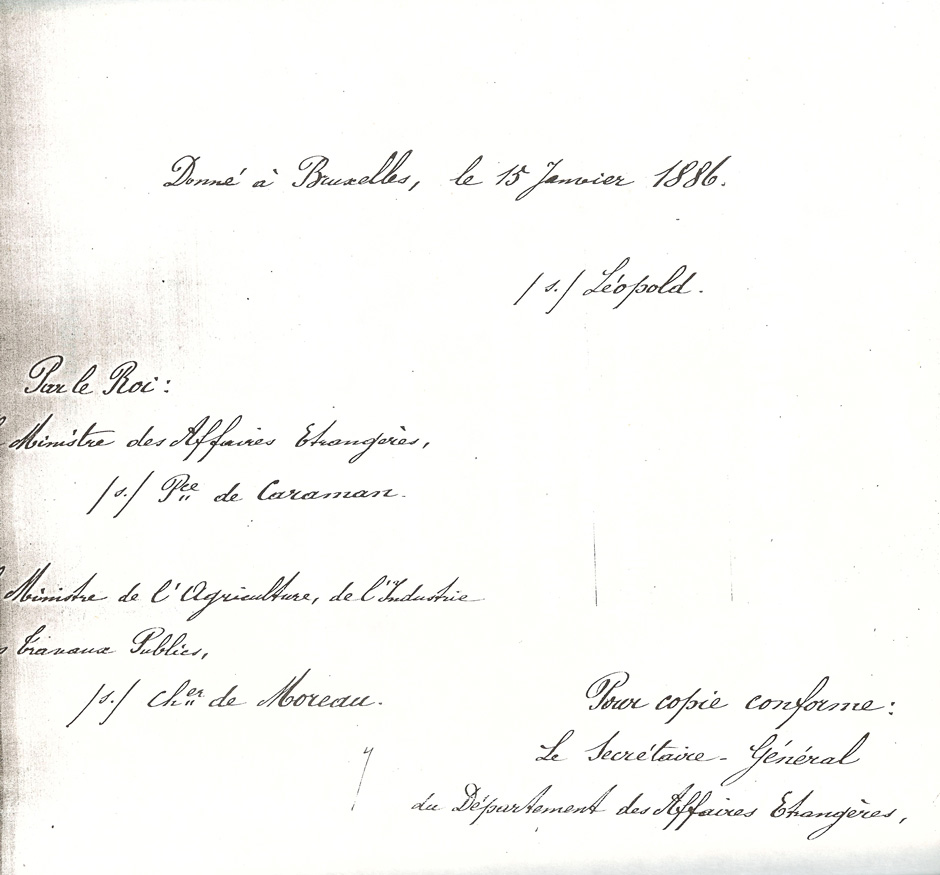 Donné à Bruxelles, le 15 Janvier 1886.
/s./ Léopold.
Par le Roi:
Ministre des Affaires Etrangères,
/s./ Pce de Caraman.
Ministre de l'Agriculture, de l'Industrie
Travaux Publics,
/s./ Cher de Moreau.
Pour copie conforme:
Le Secrétaire-Général
du Département des Affaires Etrangères,